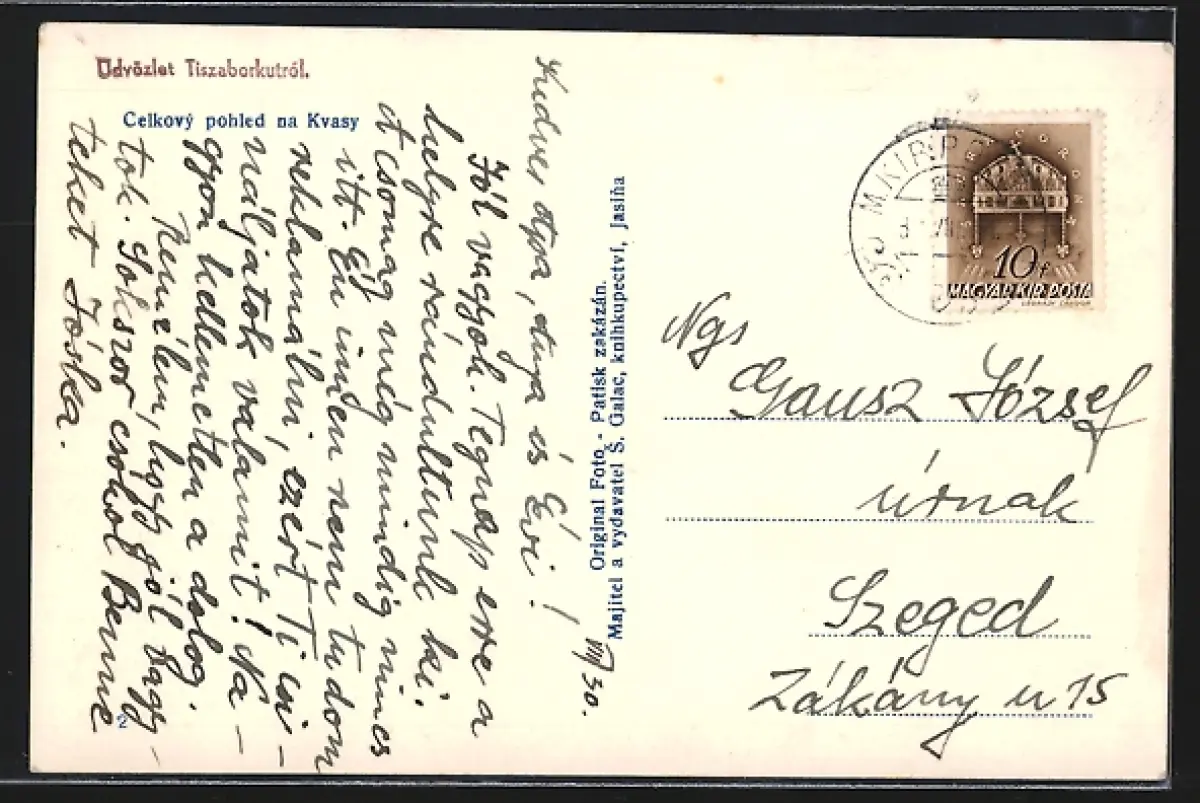 Üdvözlet Tiszaborkutról.
Celkový pohled na Kvasy
Kedves Apya, Anya és Évi!
VIII/30.
Jól vagyok. Tegnap erre a
helyre rándultunk ki.
A csomag még mindig nincs
itt. Én innen nem tudom
reklamálni, ezért Ti csi-
náljatok valamit! Na-
gyon kellemetlen a dolog.
Remélem, hogy jól vagy-
tok. Sokszor csókol Benne
teket Jóska.
2
Original Foto - Patisk zakázán.
Majitel a vydavatel Š. Galac, knihkupectví, Jasiňa
M. KIR. P
10 f
MAGYAR KIR. POSTA
Ngs
Gausz József
úrnak
Szeged
Zákány u 15